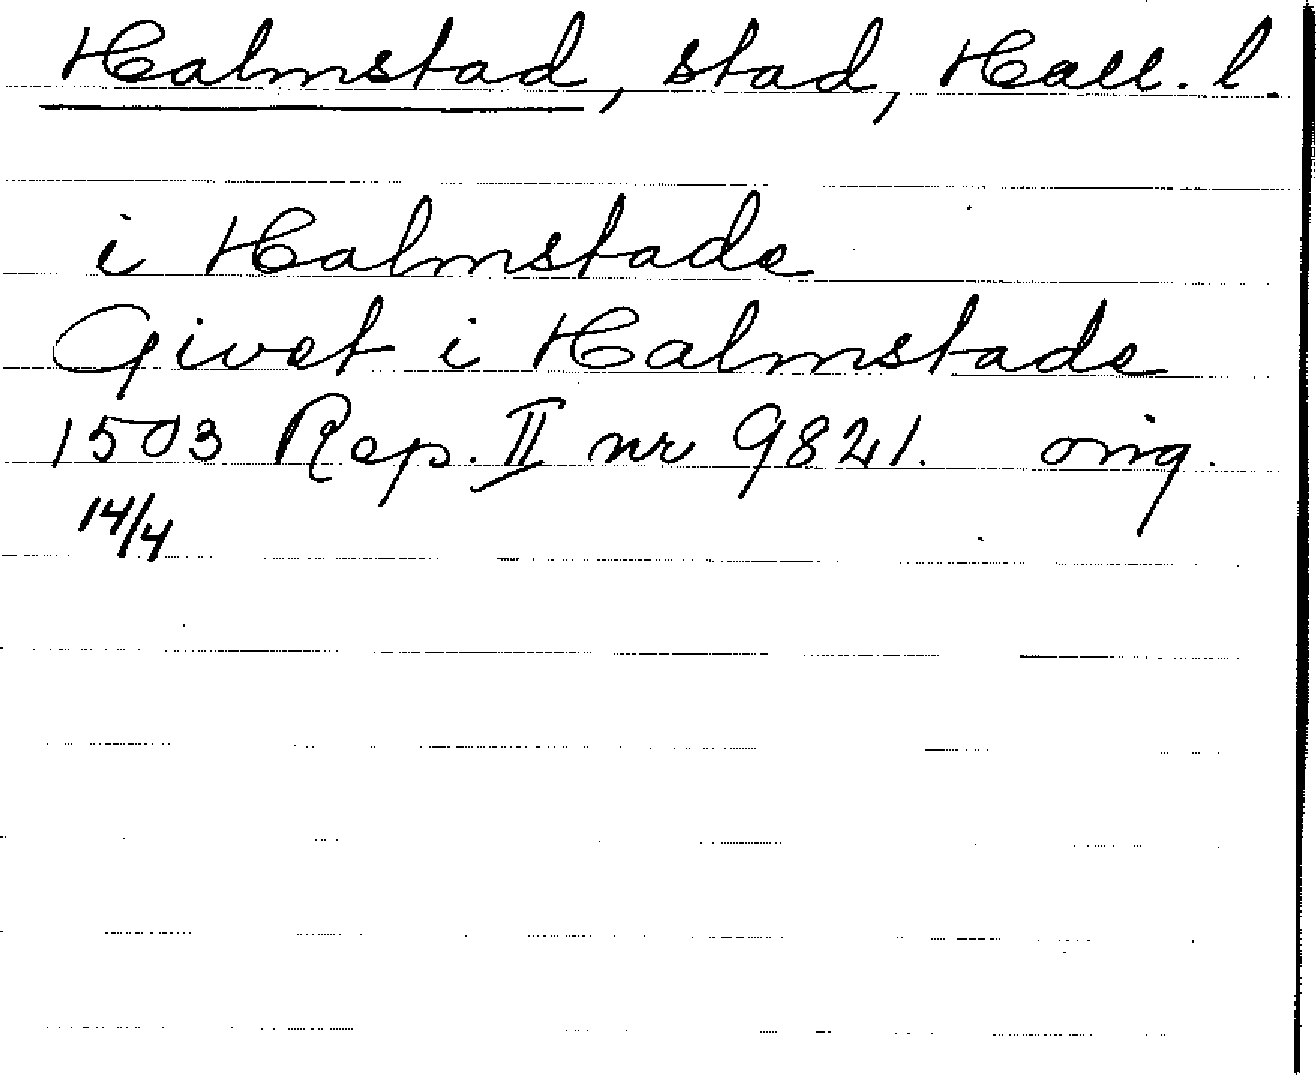 Halmstad, stad, Hall. l.
i Halmstade
Givet i Halmstade
1503 Rep. II nr 9821. orig.
14/4